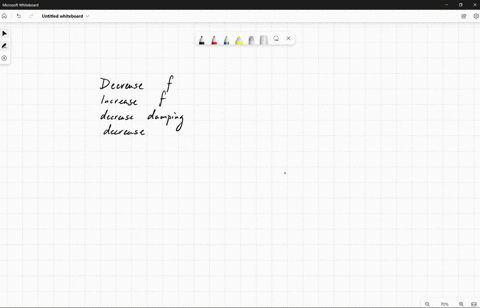 Microsoft Whiteboard
Untitled whiteboard
Decrease f
Increase f
decrease damping
decrease
70%